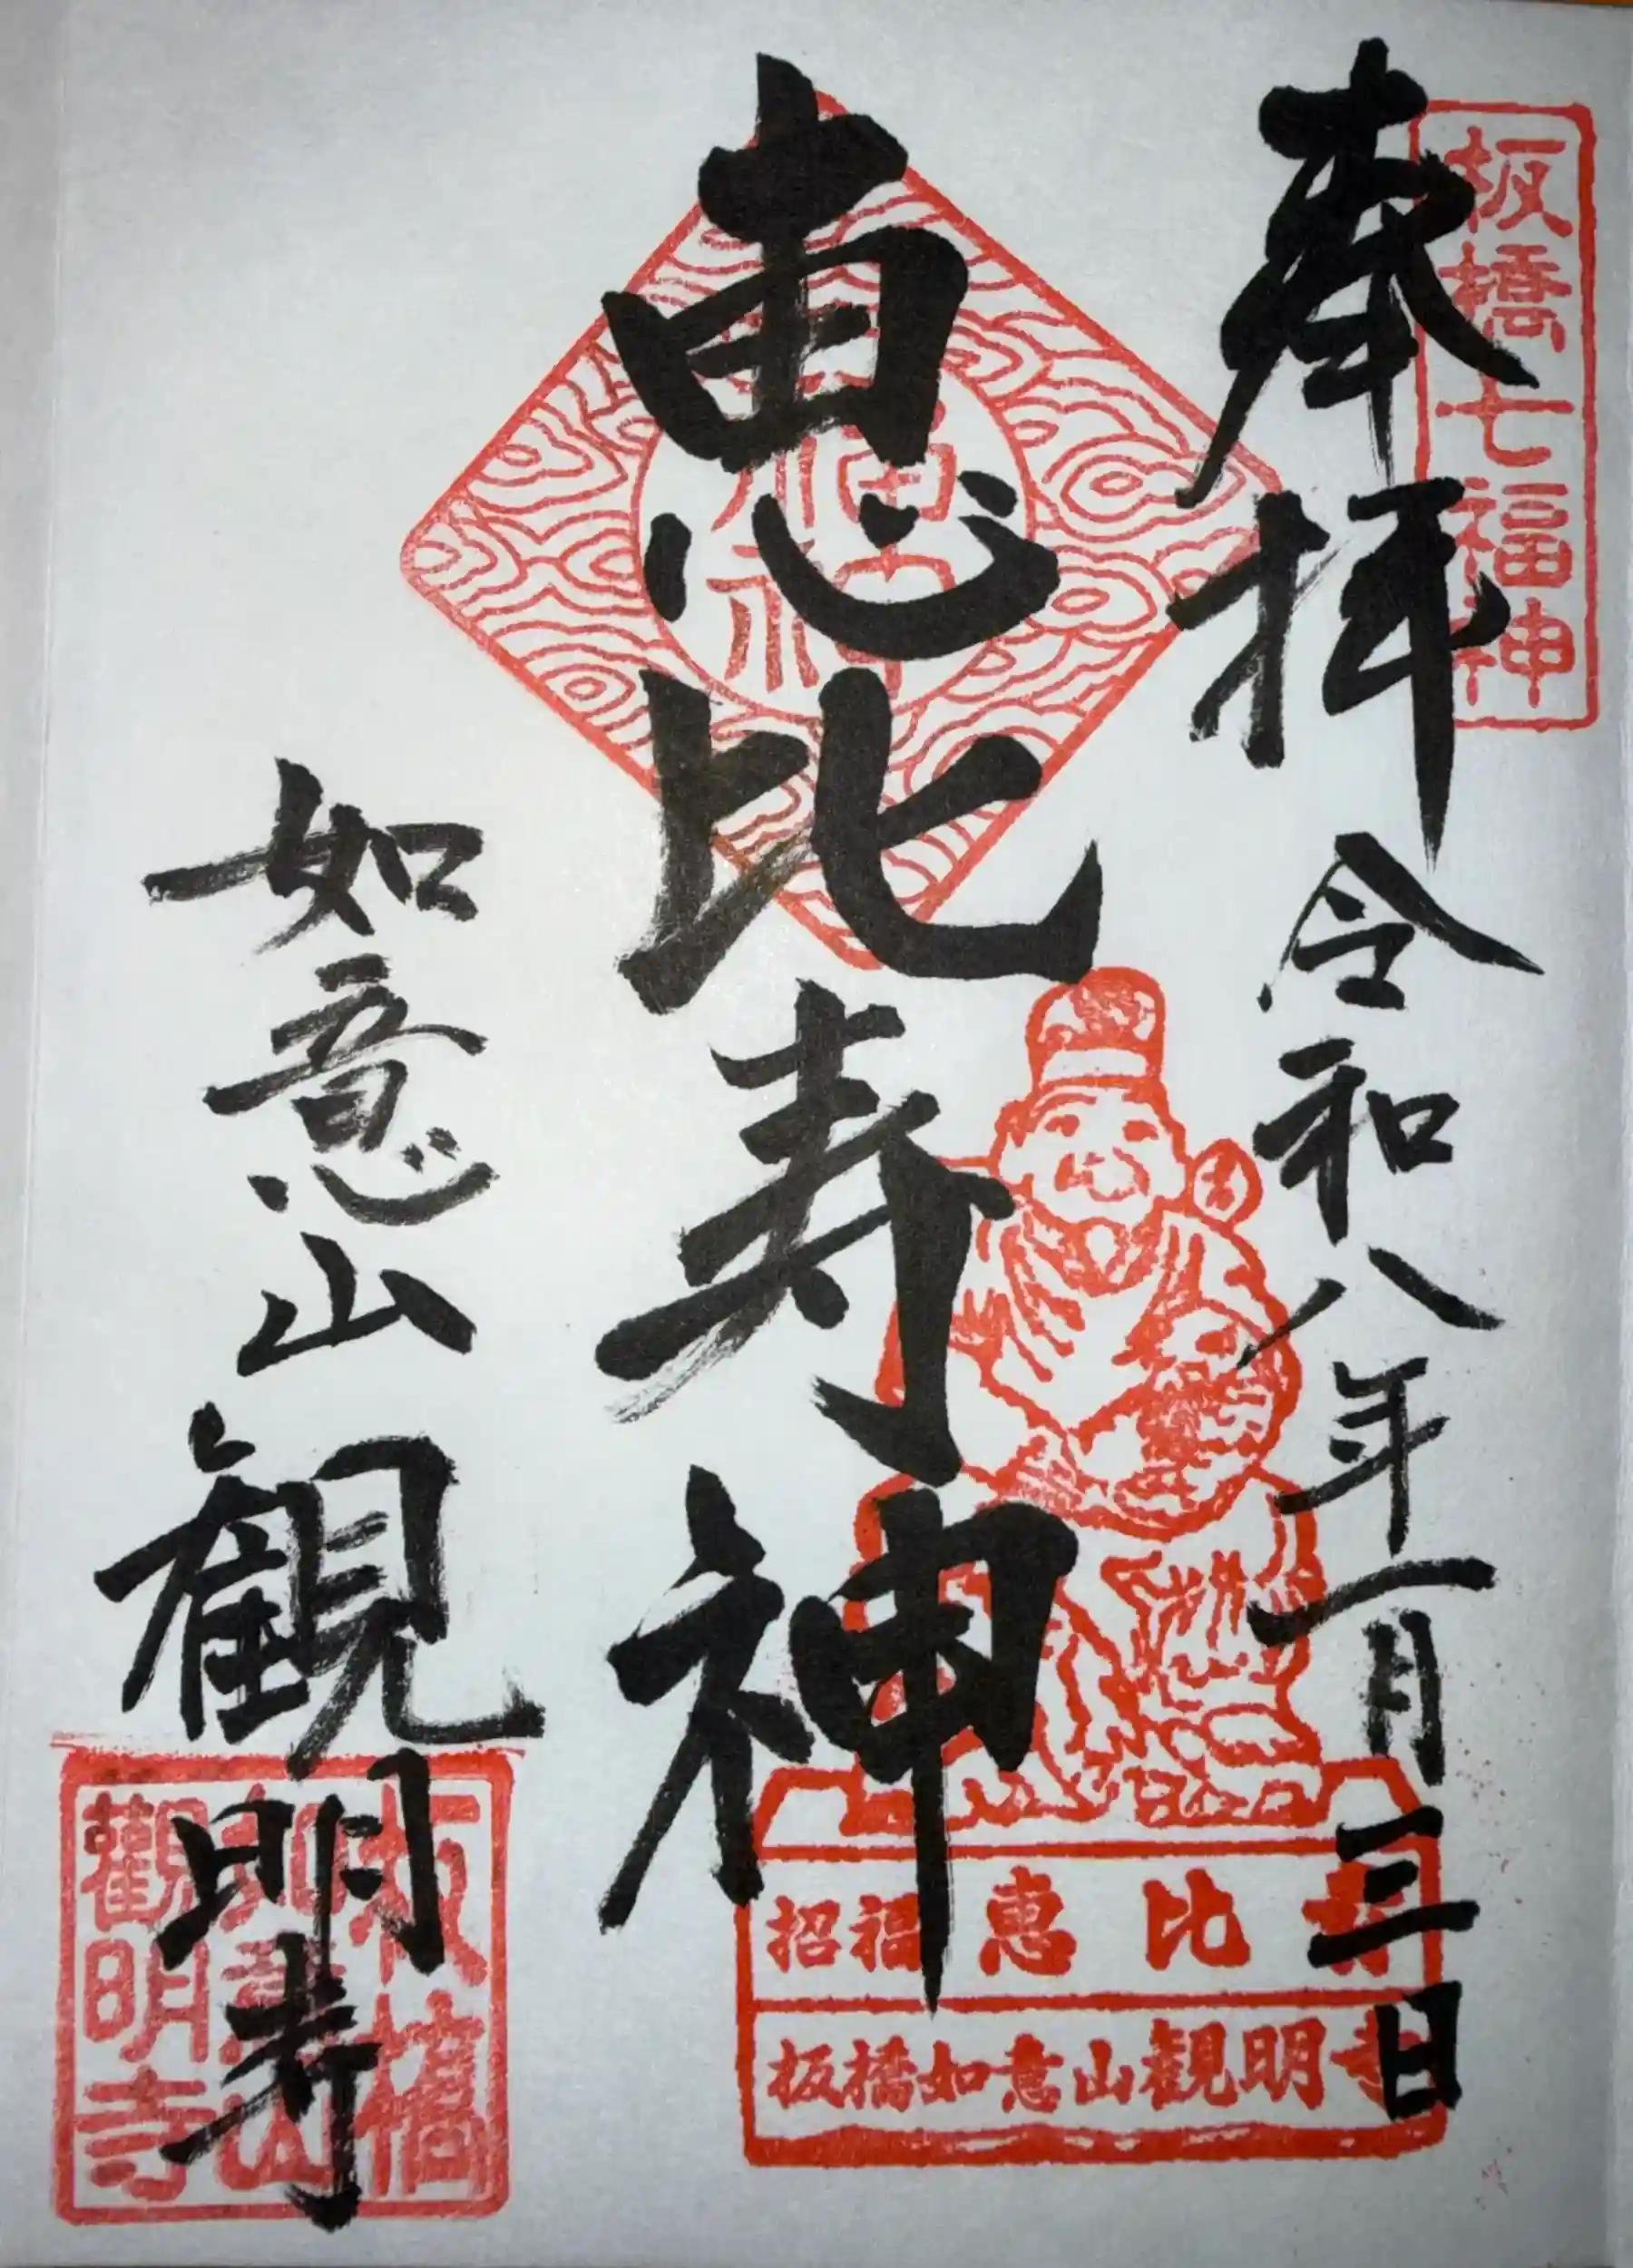 板橋七福神
奉拝
令和八年一月三日
福神
恵比寿神
招福 恵比寿
板橋如意山観明寺
如意山
観明寺
板橋
如意山
觀明寺